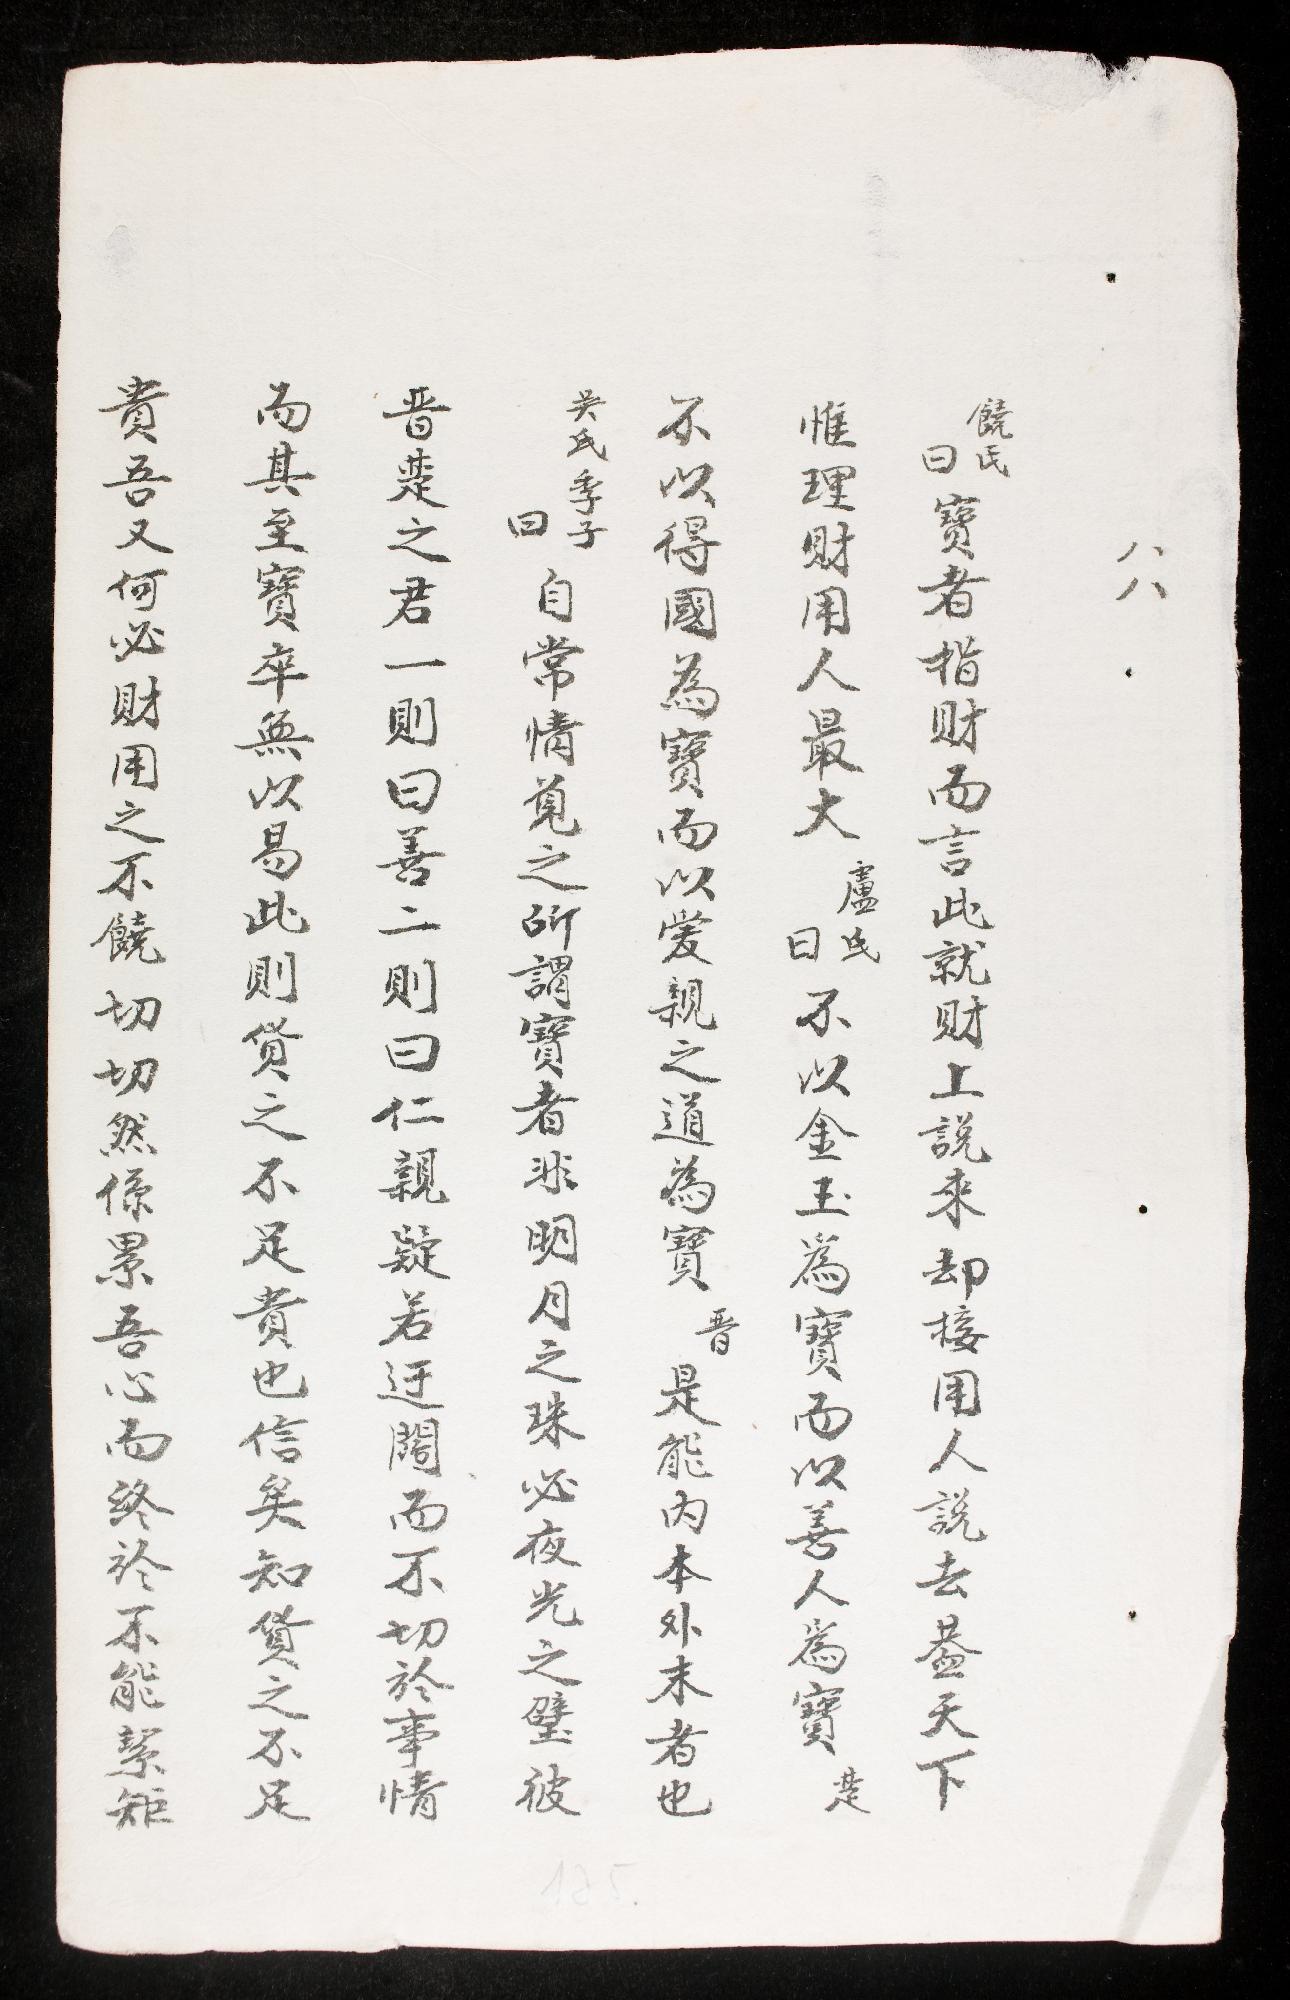 八八
饒氏曰寶者指財而言此就財上説來却接用人説去葢天下
惟理財用人最大盧氏曰不以金玉為寶而以善人為寶楚
不以得國為寶而以爱親之道為寶晋是能内本外末者也
吴氏季子曰自常情覓之所謂寶者非明月之珠必夜光之璧彼
晋楚之君一則曰善二則曰仁親疑若迂闊而不切於事情
而其至寶卒無以易此則貨之不足貴也信矣知貨之不足
貴吾又何必財用之不饒切切然係累吾心而終於不能絜矩